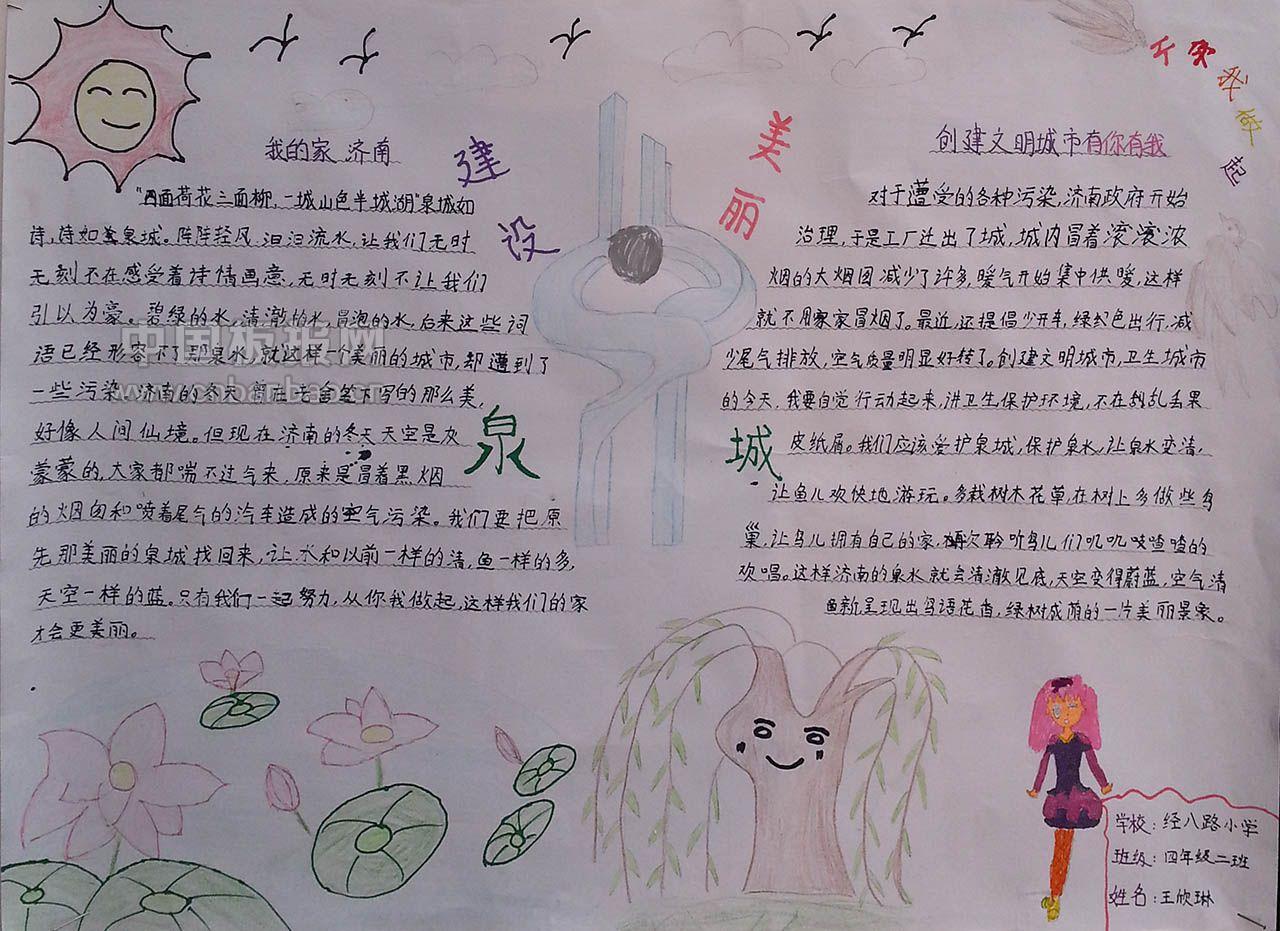 建设美丽泉城
从我做起
我的家 济南
"四面荷花三面柳，一城山色半城湖"泉城如
诗，诗如泉城。阵阵轻风，汩汩流水，让我们无时
无刻不在感受着诗情画意，无时无刻不让我们
引以为豪。碧绿的水，清澈的水，冒泡的水，后来这些词
语已经形容不了那泉水，就这样一个美丽的城市，却遭到了
一些污染。济南的冬天曾在老舍笔下写的那么美，
好像人间仙境。但现在济南的冬天天空是灰
蒙蒙的，大家都喘不过气来，原来是冒着黑烟
的烟囱和喷着尾气的汽车造成的空气污染。我们要把原
先那美丽的泉城找回来，让水和以前一样的清，鱼一样的多，
天空一样的蓝。只有我们一起努力，从你我做起，这样我们的家
才会更美丽。
创建文明城市有你有我
对于遭受的各种污染，济南政府开始
治理，于是工厂迁出了城，城内冒着滚滚浓
烟的大烟囱减少了许多，暖气开始集中供暖，这样
就不用家家冒烟了。最近，还提倡少开车，绿色出行，减
少尾气排放，空气质量明显好转了。创建文明城市，卫生城市
的今天，我要自觉行动起来，讲卫生保护环境，不在乱丢果
皮纸屑。我们应该爱护泉城，保护泉水，让泉水变清，
让鱼儿欢快地游玩。多栽树木花草，在树上多做些鸟
巢，让鸟儿拥有自己的家，再次聆听鸟儿们叽叽喳喳的
欢唱。这样济南的泉水就会清澈见底，天空变得蔚蓝，空气清
新呈现出鸟语花香，绿树成荫的一片美丽景象。
学校：经八路小学
班级：四年级二班
姓名：王欣琳
中国板报网